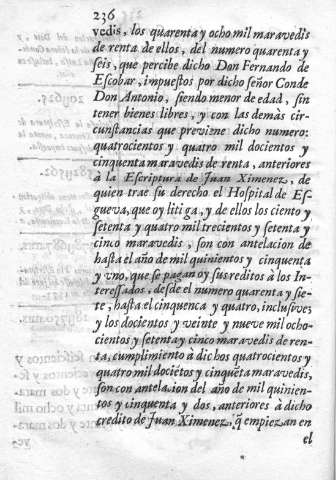 236
vedis, los quarenta y ocho mil maravedis
de renta de ellos, del numero quarenta y
seis, que percibe dicho Don Fernando de
Escobar, impuestos por dicho señor Conde
Don Antonio, siendo menor de edad, sin
tener bienes libres, y con las demàs cir-
cunstancias que previene dicho numero:
quatrocientos y quatro mil docientos y
cinquenta maravedis de renta, anteriores
à la Escriptura de Juan Ximenez, de
quien trae su derecho el Hospital de Es-
gueva, que oy litiga, y de ellos los ciento y
setenta y quatro mil trecientos y setenta y
cinco maravedis, son con antelacion de
hasta el año de mil quinientos y cinquenta
y vno, que se pagan oy sus reditos à los In-
teressados, desde el numero quarenta y sie-
te, hasta el cinquenca y quatro, inclusive;
y los docientos y veinte y nueve mil ocho-
cientos y setenta y cinco maravedis de ren-
ta, cumplimiento à dichos quatrocientos y
quatro mil dociẽtos y cinquẽta maravedis,
son con antelacion del año de mil quinien-
tos y cinquenta y dos, anteriores à dicho
credito de Juan Ximenez, q̃ empiezan en
el